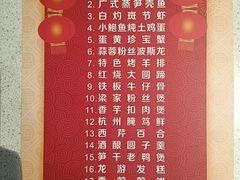 2. 广式蒸笋壳鱼
3. 白灼斑节虾
4. 小鲍鱼炖土鸡蛋
5. 蛋黄珍宝蟹
6. 蒜蓉粉丝波斯龙
7. 特色烤羊排
8. 红烧大圆蹄
9. 铁板牛仔骨
10. 梁家粉丝煲
11. 香芋扣肉煲
12. 杭州腌笃鲜
13. 西芹百合
14. 酒酿圆子羹
15. 笋干老鸭煲
16. 龙游发糕
17.